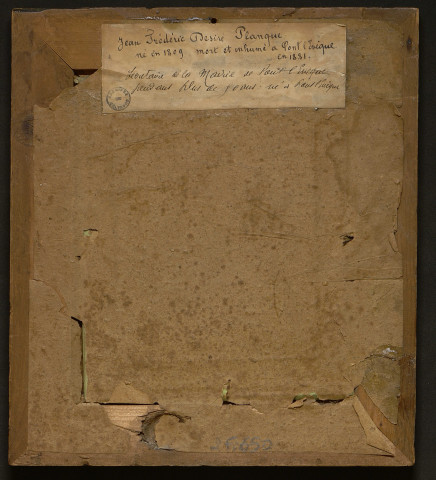 Jean Frédéric Desiré Péanque
né en 1809 mort et inhumé à Pont l'Evêque
en 1881.
Secrétaire de la Mairie de Pont l'Evêque
pendant plus de 30 ans - né à Pont l'Evêque